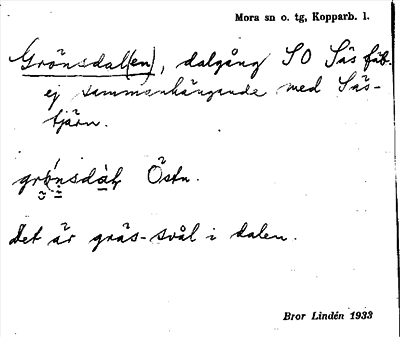 Mora sn o. tg, Kopparb. l.
Grönsdal(en), dalgång SO Säs fäb.
ej sammanhängande med Säs-
tjärn.
Östn.
Det är gräs-svål i dalen.
Bror Lindén 1933